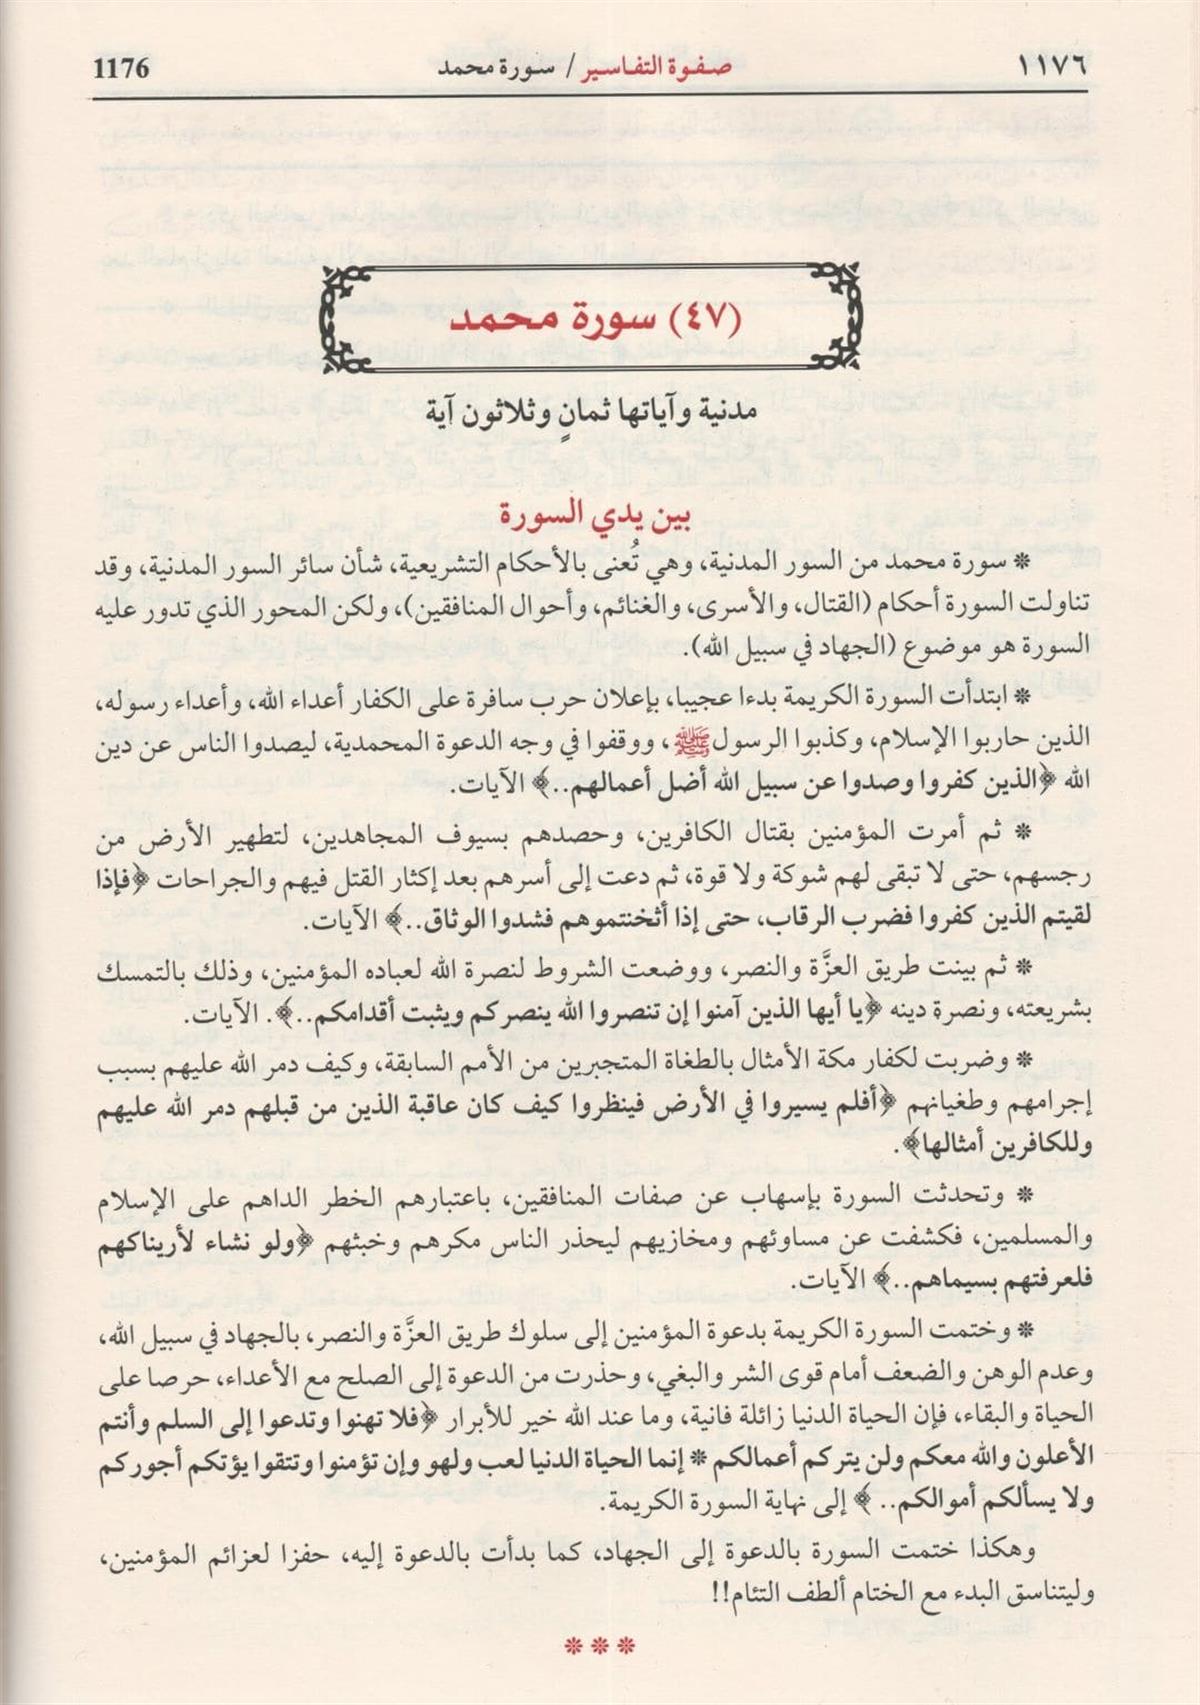 ١١٧٦ صفوة التفاسير / سورة محمد 1176
(٤٧) سورة محمد
مدنية وآياتها ثمانٍ وثلاثون آية
بين يدي السورة
❋ سورة محمد من السور المدنية، وهي تُعنى بالأحكام التشريعية، شأن سائر السور المدنية، وقد
تناولت السورة أحكام (القتال، والأسرى، والغنائم، وأحوال المنافقين)، ولكن المحور الذي تدور عليه
السورة هو موضوع (الجهاد في سبيل الله).
❋ ابتدأت السورة الكريمة بدءا عجيبا، بإعلان حرب سافرة على الكفار أعداء الله، وأعداء رسوله،
الذين حاربوا الإسلام، وكذبوا الرسول ﷺ، ووقفوا في وجه الدعوة المحمدية، ليصدوا الناس عن دين
الله ﴿الذين كفروا وصدوا عن سبيل الله أضل أعمالهم..﴾ الآيات.
❋ ثم أمرت المؤمنين بقتال الكافرين، وحصدهم بسيوف المجاهدين، لتطهير الأرض من
رجسهم، حتى لا تبقى لهم شوكة ولا قوة، ثم دعت إلى أسرهم بعد إكثار القتل فيهم والجراحات ﴿فإذا
لقيتم الذين كفروا فضرب الرقاب، حتى إذا أثخنتموهم فشدوا الوثاق..﴾ الآيات.
❋ ثم بينت طريق العزَّة والنصر، ووضعت الشروط لنصرة الله لعباده المؤمنين، وذلك بالتمسك
بشريعته، ونصرة دينه ﴿يا أيها الذين آمنوا إن تنصروا الله ينصركم ويثبت أقدامكم..﴾. الآيات.
❋ وضربت لكفار مكة الأمثال بالطغاة المتجبرين من الأمم السابقة، وكيف دمر الله عليهم بسبب
إجرامهم وطغيانهم ﴿أفلم يسيروا في الأرض فينظروا كيف كان عاقبة الذين من قبلهم دمر الله عليهم
وللكافرين أمثالها﴾.
❋ وتحدثت السورة بإسهاب عن صفات المنافقين، باعتبارهم الخطر الداهم على الإسلام
والمسلمين، فكشفت عن مساوئهم ومخازيهم ليحذر الناس مكرهم وخبثهم ﴿ولو نشاء لأريناكهم
فلعرفتهم بسيماهم..﴾ الآيات.
❋ وختمت السورة الكريمة بدعوة المؤمنين إلى سلوك طريق العزَّة والنصر، بالجهاد في سبيل الله،
وعدم الوهن والضعف أمام قوى الشر والبغي، وحذرت من الدعوة إلى الصلح مع الأعداء، حرصا على
الحياة والبقاء، فإن الحياة الدنيا زائلة فانية، وما عند الله خير للأبرار ﴿فلا تهنوا وتدعوا إلى السلم وأنتم
الأعلون والله معكم ولن يتركم أعمالكم ❋ إنما الحياة الدنيا لعب ولهو وإن تؤمنوا وتتقوا يؤتكم أجوركم
ولا يسألكم أموالكم.. ﴾ إلى نهاية السورة الكريمة.
وهكذا ختمت السورة بالدعوة إلى الجهاد، كما بدأت بالدعوة إليه، حفزا لعزائم المؤمنين،
وليتناسق البدء مع الختام ألطف التئام!!
❋ ❋ ❋